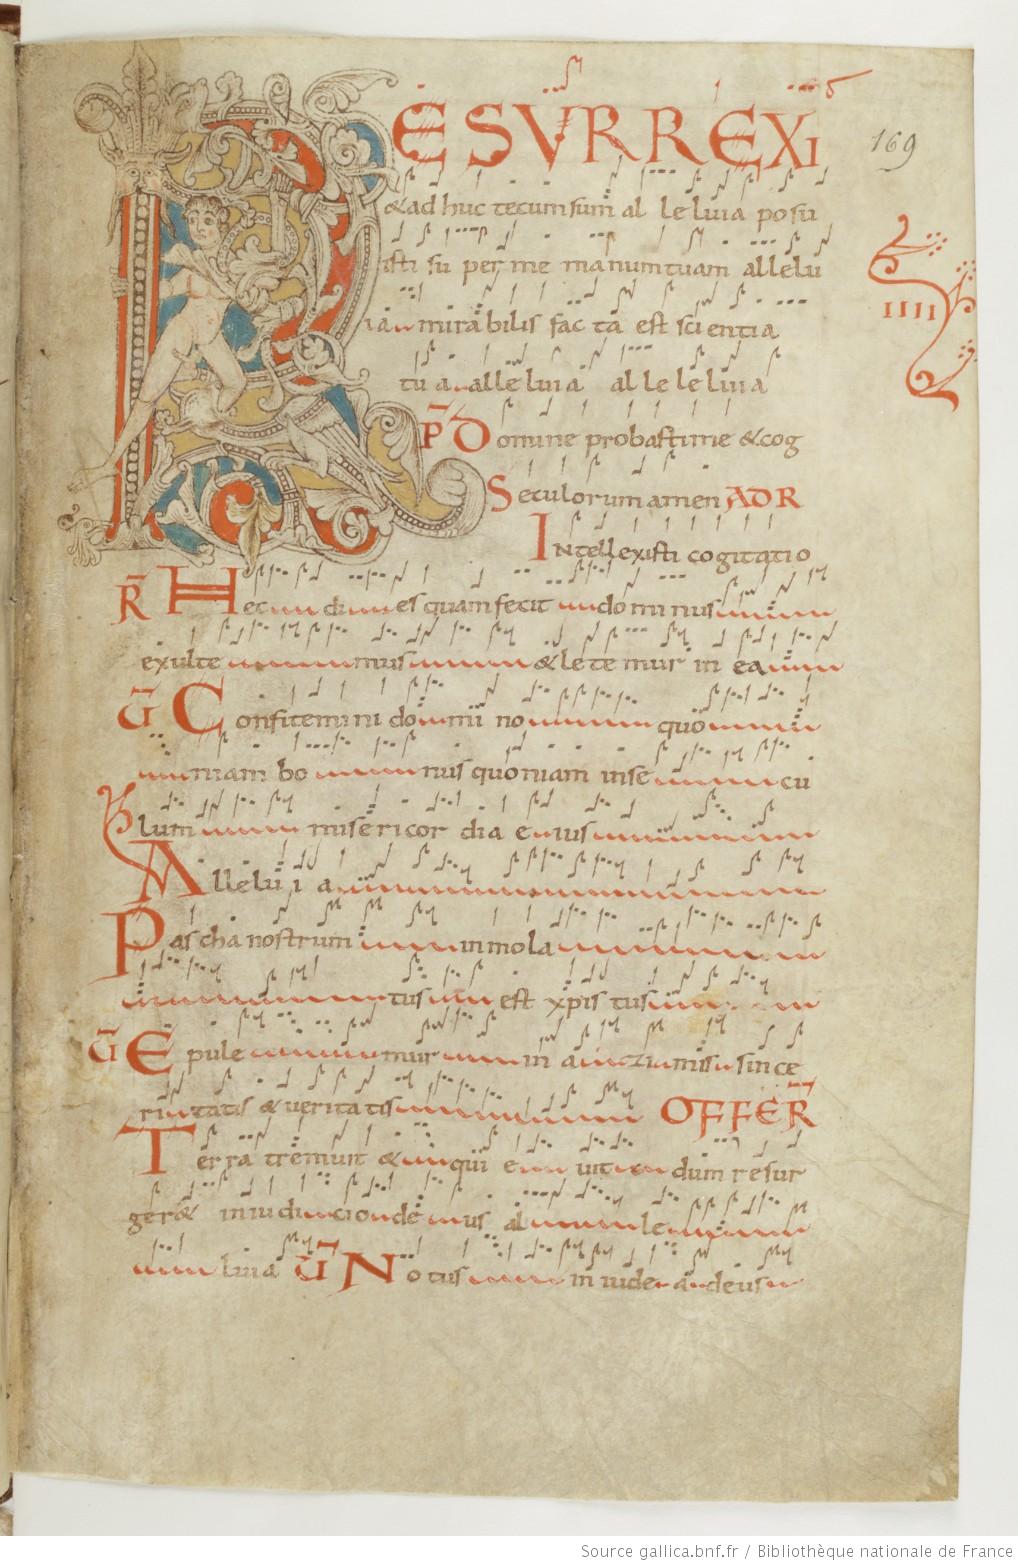 RESURREXI
169
& ad huc tecum sum al le luia posu
isti su per me manum tuam allelu
IIII
ia mirabilis fac ta est scientia
tu a alleluia al le leluia
P D omine probasti me & cog
Seculorum amen AD R
Intellexisti cogitatio
R Hec dies quam fecit dominus
exulte mus & lete mur in ea
V Confitemini domi no quo
niam bo nus quoniam in se cu
lum misericor dia eius
Allelu i a
Pascha nostrum inmola
tus est xpis tus
V Epule mur in a zi mis since
ritatis & veritatis OFFER
Terra tremuit & qui e vit dum resur
ger& in iu di cio de us al le
luia V Notus in iude a deus
Source gallica.bnf.fr / Bibliothèque nationale de France